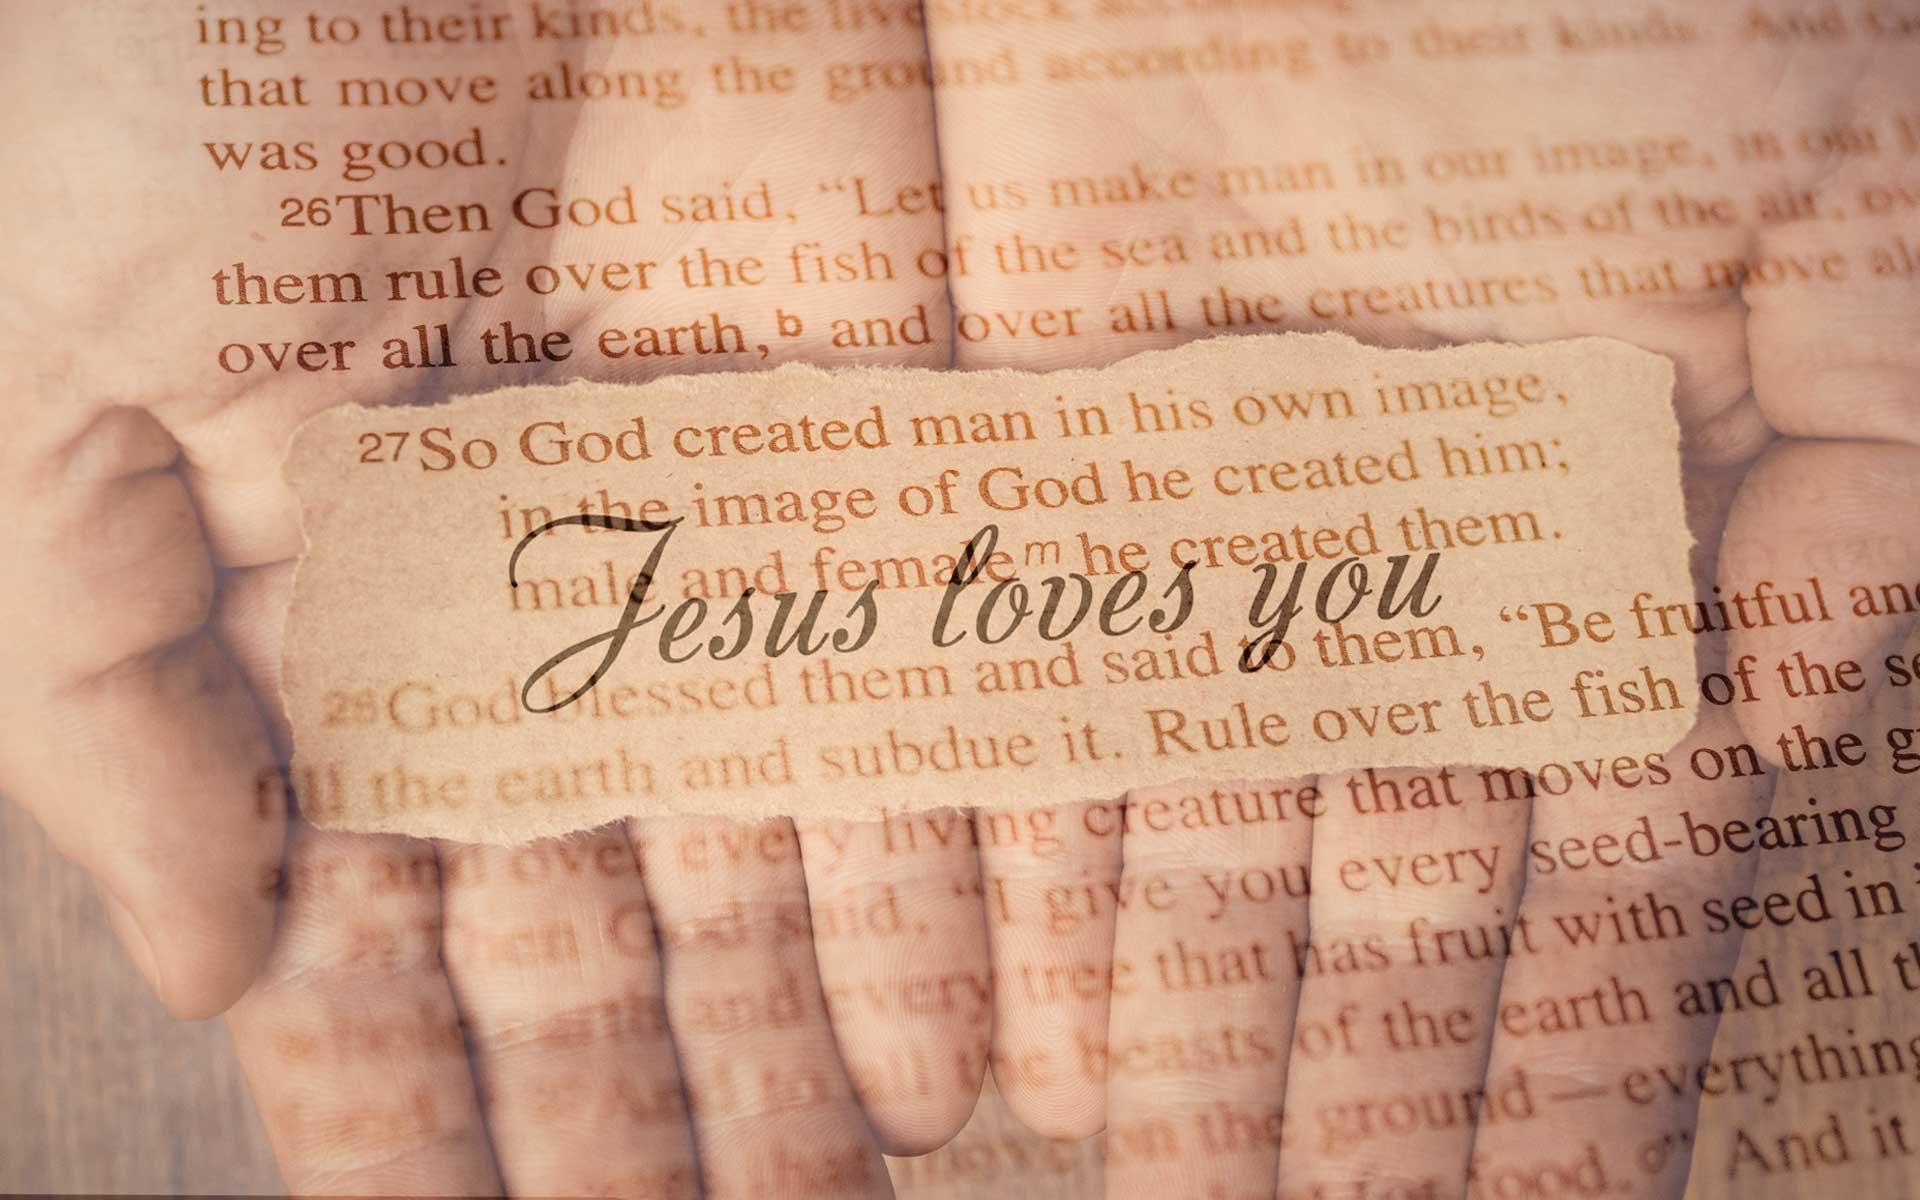 ing to their kinds, the livestock according
that move along the ground according to their kinds. And
was good.
26Then God said, “Let us make man in our image, in our
them rule over the fish of the sea and the birds of the air,
over all the earth,b and over all the creatures that move
27So God created man in his own image,
in the image of God he created him;
male and femalem he created them.
Jesus loves you
28God blessed them and said to them, “Be fruitful and
fill the earth and subdue it. Rule over the fish of the
air and over every living creature that moves on the
Then God said, “I give you every seed-bearing
earth and every tree that has fruit with seed in
all the beasts of the earth and all
move on the ground—everything
food.” And it